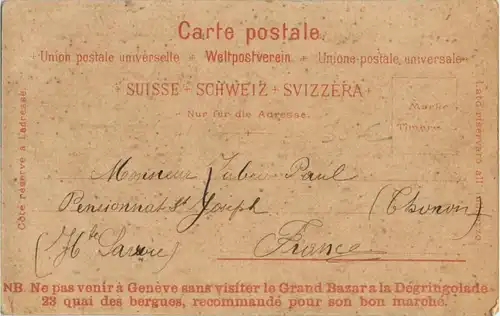 Carte postale.
Union postale universelle + Weltpostverein + Unione postale universale
SUISSE + SCHWEIZ + SVIZZERA
Nur für die Adresse.
Marke
Timbre
Côté réservé à l'adresse.
Lato riservato all'
Monsieur Paul
Pensionnat St Joseph (Thonon)
(Hte Savoie) France
NB. Ne pas venir à Genève sans visiter le Grand Bazar à la Dégringolade
23 quai des bergues, recommandé pour son bon marché.